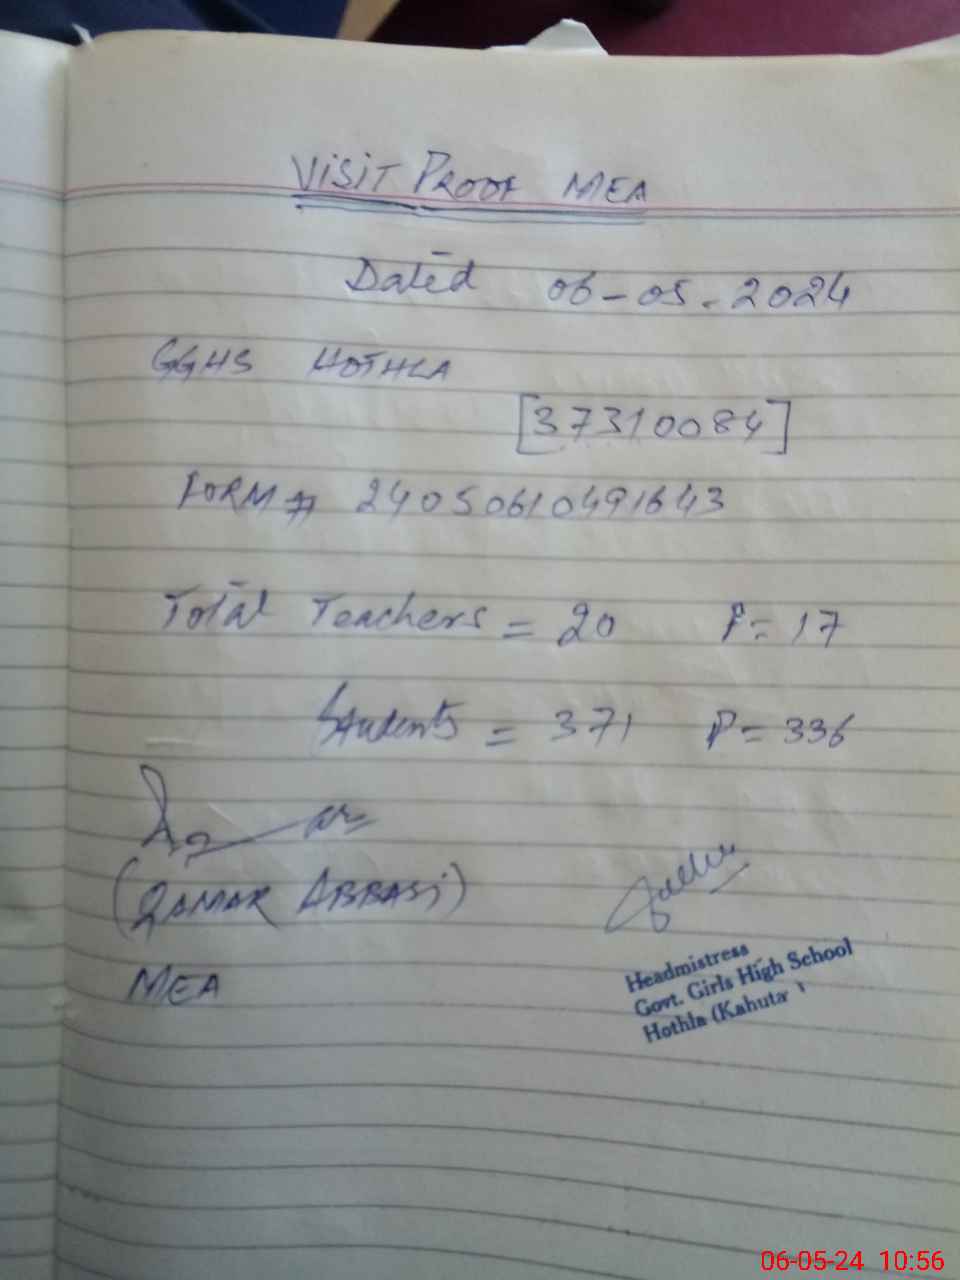 VISIT PROOF MEA
Dated 06-05-2024
GGHS HOTHLA
[37310084]
FORM # 24050610491643
Total Teachers = 20 P= 17
Students = 371 P= 336
(QAMAR ABBASI)
MEA
Headmistress
Govt. Girls High School
Hothla (Kahuta)
06-05-24 10:56